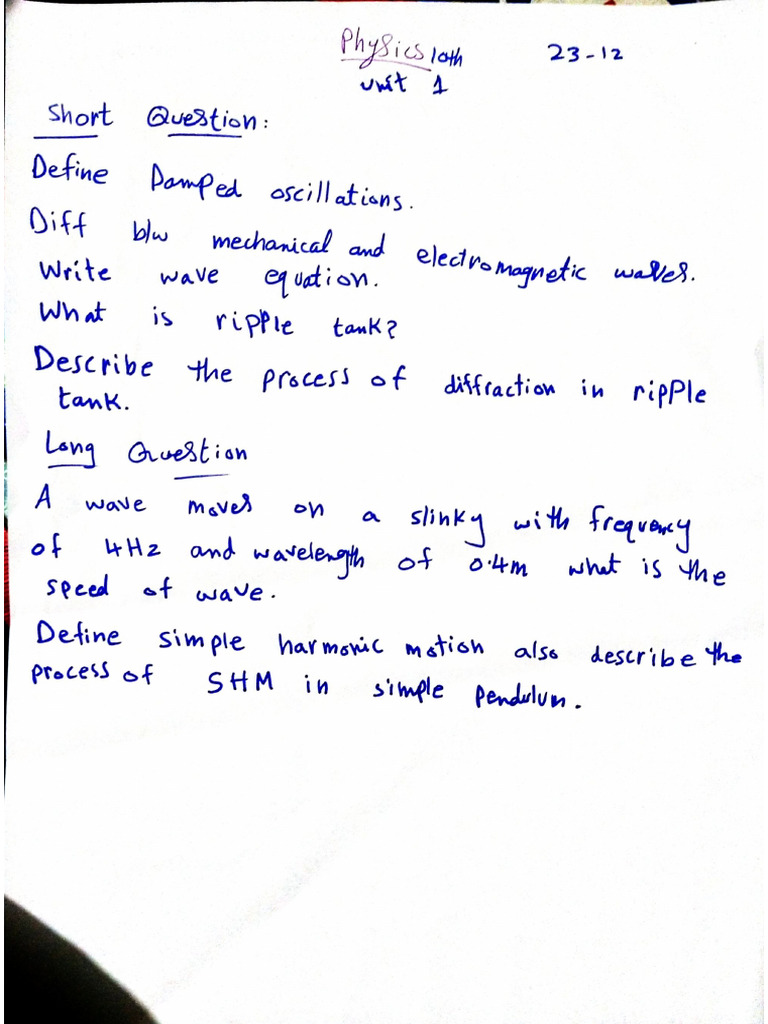 Physics 10th 23-12
unit 1
Short Question:
Define Damped oscillations.
Diff b/w mechanical and electromagnetic waves.
Write wave equation.
What is ripple tank?
Describe the process of diffraction in ripple
tank.
Long Question
A wave moves on a slinky with frequency
of 4Hz and wavelength of 0.4m what is the
speed of wave.
Define simple harmonic motion also describe the
process of SHM in simple pendulum.